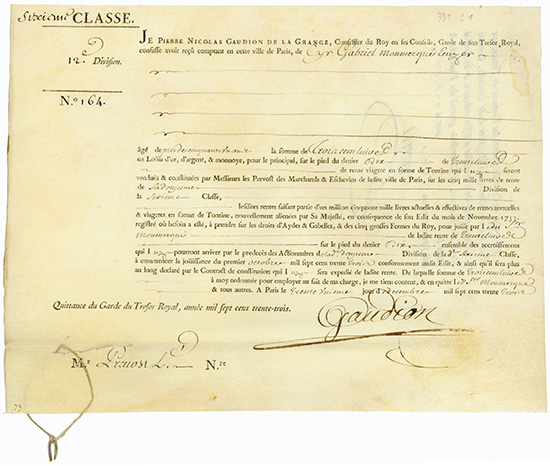 Sixieme CLASSE.
12e Division.
N.o 164.
JE PIERRE NICOLAS GAUDION DE LA GRANGE, Conseiller du Roy en ses Conseils, Garde de son Tresor Royal,
confesse avoir reçu comptant en cette ville de Paris, de Cyr Gabriel Monmerqué
âgé de la somme de Trois cens livres
en Louis d'or, d'argent, & monnoye, pour le principal, sur le pied du denier Dix de Trente livres
de ladite rente
de rente viagere en forme de Tontine qui luy seront
vendus & constituées par Messieurs les Prevost des Marchands & Eschevins de ladite ville de Paris, sur les cinq mille livres de rente
de la douzieme Division de
la Sixieme Classe,
lesdites rentes faisant partie d'un million cinquante mille livres actuelles & effectives de rentes annuelles
& viageres en forme de Tontine, nouvellement aliénées par Sa Majesté, en consequence de son Edit du mois de Novembre 1733.
registré où besoin a esté, à prendre sur les droits d'Aydes & Gabelles, & des cinq grosses Fermes du Roy, pour jouir par led. Sr.
Monmerqué de Trente livres de
sur le pied du denier Dix ensemble des accroissemens
qui luy pourront arriver par le predecés des Actionnaires de lad. douzieme Division de la de. Sixieme Classe,
à commencer la jouissance du premier Octobre mil sept cens trente trois conformément audit Edit, & ainsi qu'il sera plus
au long declaré par le Contract de constitution qui luy sera expedié de ladite rente. De laquelle somme de Trois cens livres
à moy ordonnée pour employer au fait de ma charge, je me tiens content, & en quitte led. Sr. Monmerqué
& tous autres. A Paris le Trente unieme jour de decembre mil sept cens trente trois
Quittance du Garde du Tresor Royal, année mil sept cens trente-trois.
Gaudion
Mr. Prevost L. N.re